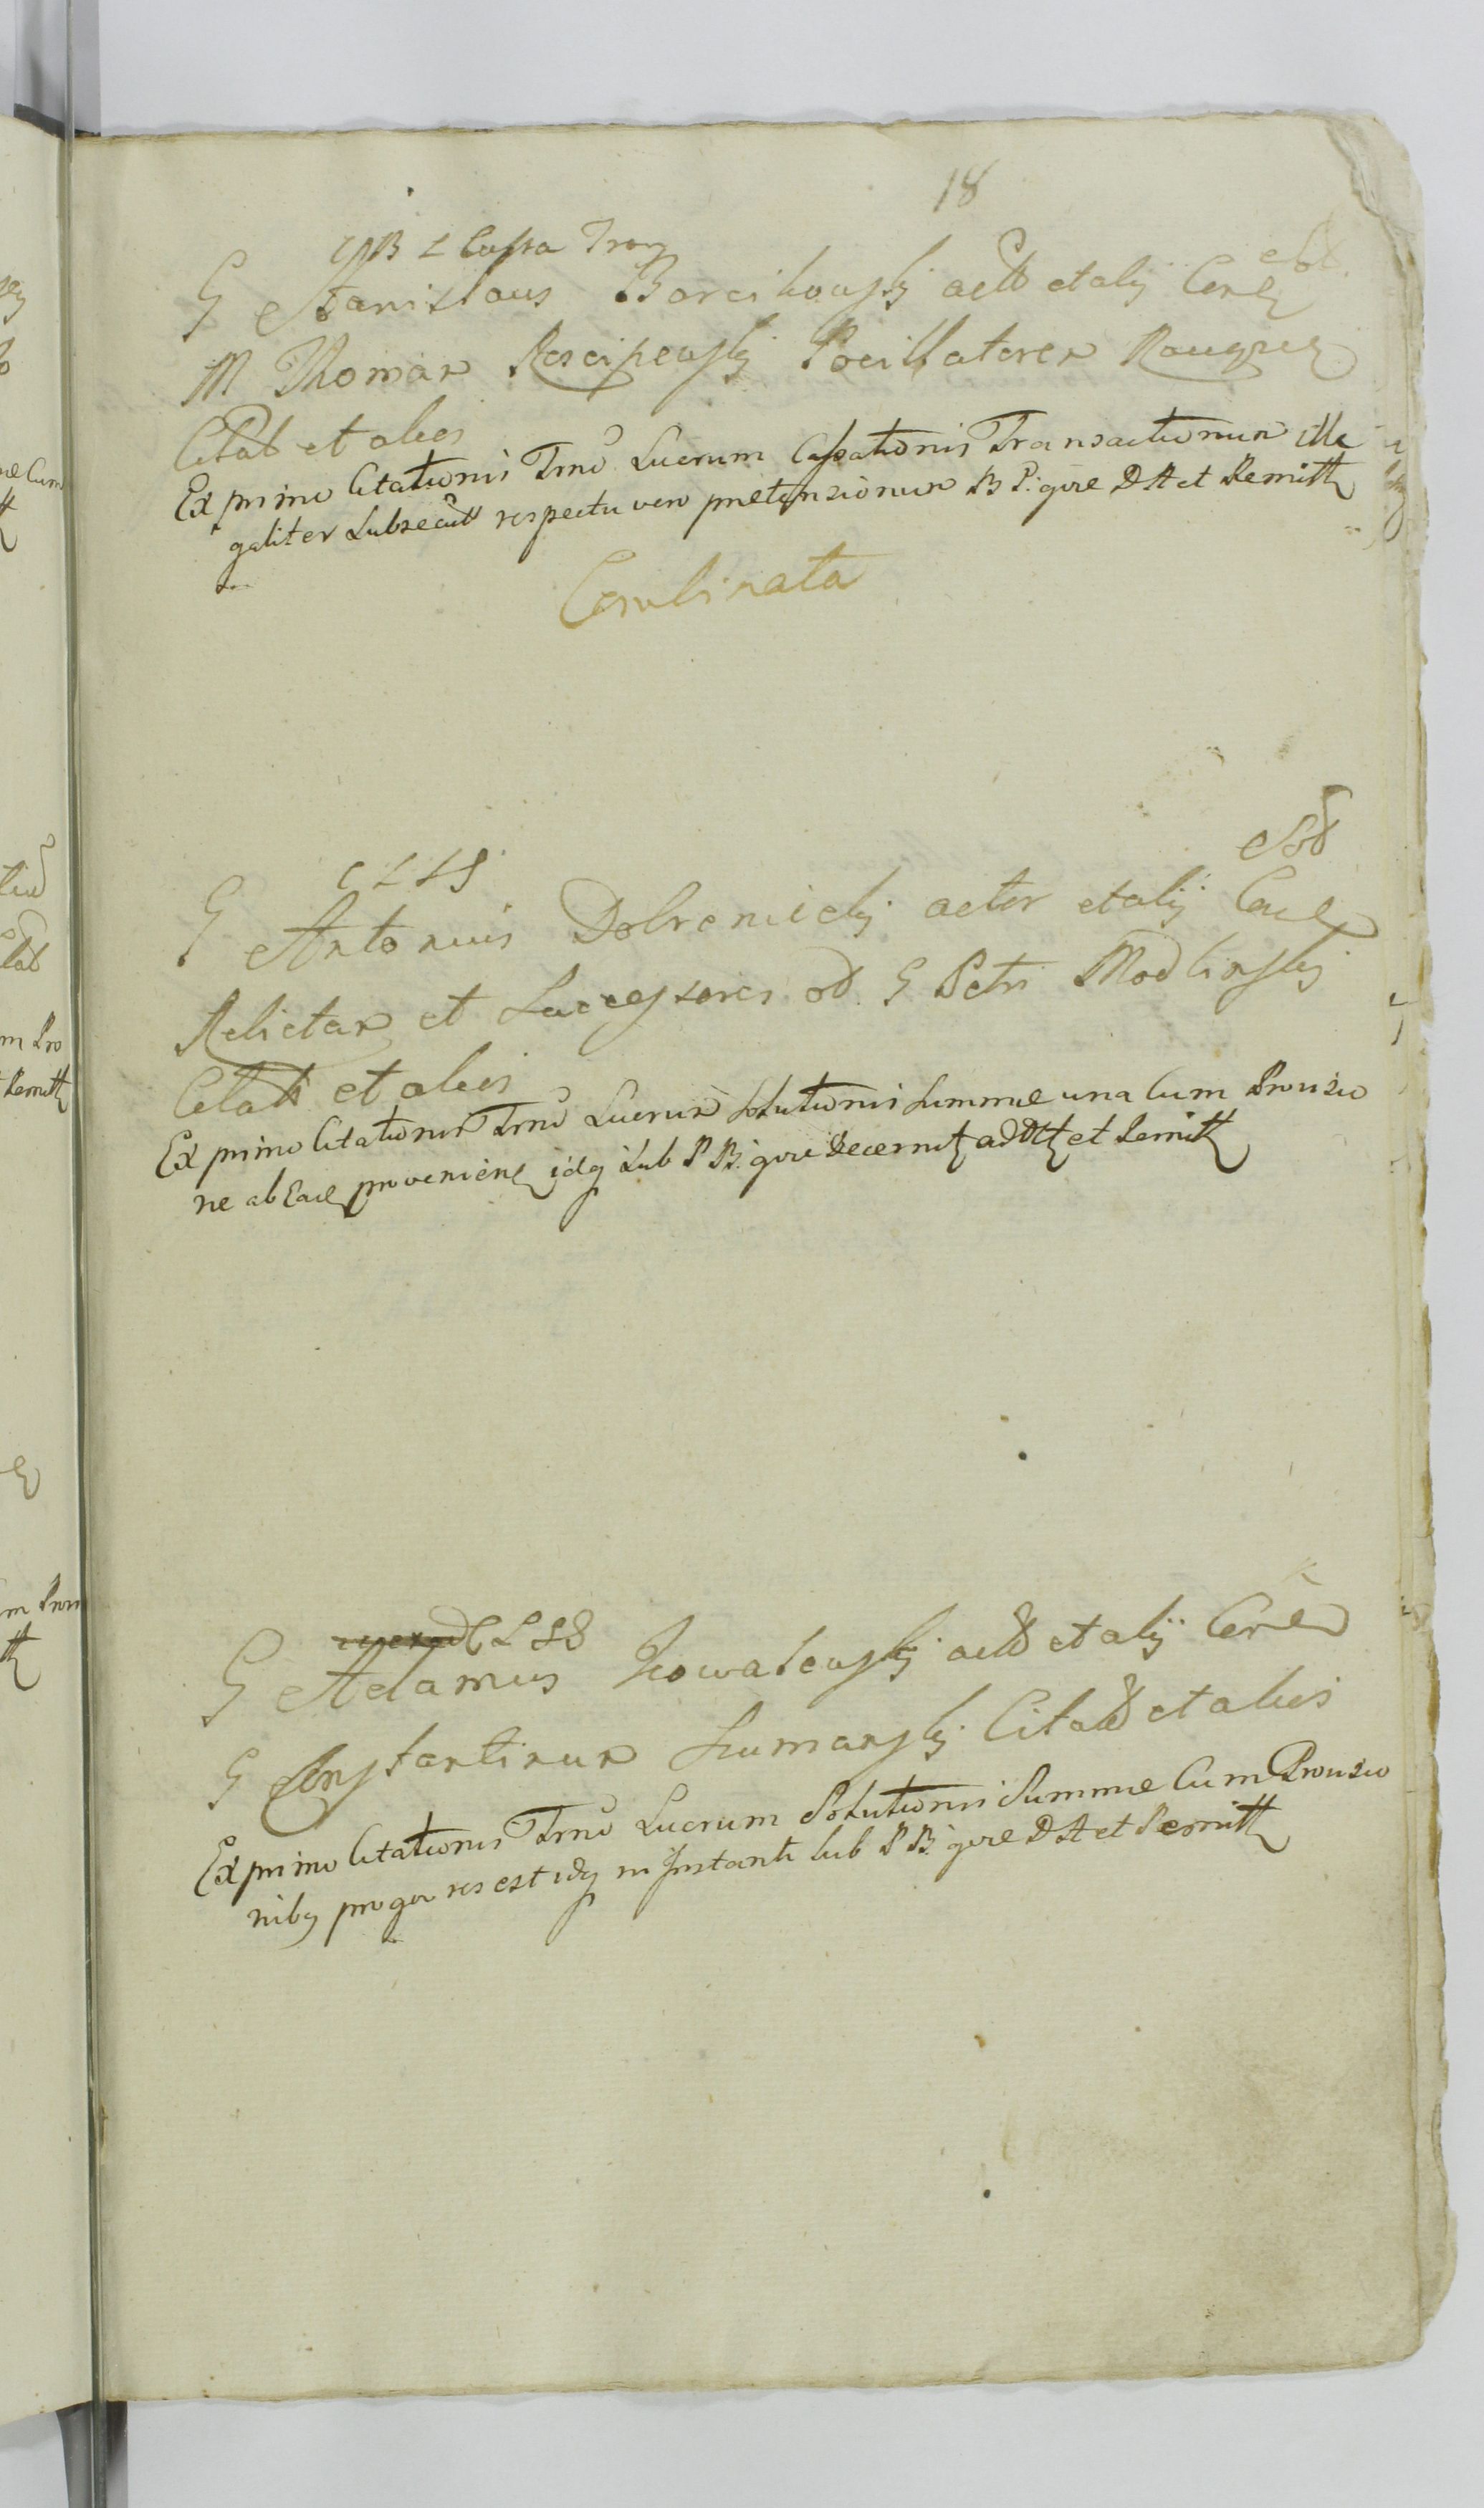 18
B L Cassa Tran
G Stanislaus Borcikowskj actt et alij
M Thomam Pocillatorem
Citat et alios
Ex primo Citationis Trno Lucrum Cassationis Transactionum ille
galiter Subsecut respectu vero praetensionum B P: gore D A et Remitt
Combinata
eod
C L L S
G Antonius Dobronickj actor et alij Conl
Relictam et Successores od G Petri Modlinskj
Citatt et alios
Ex primo Citationis Trno Lucrum Solutionis Summae una Cum Provisio
ne ab Eade provenien idq Sub P B: gore Decernit addtt et Remitt
C L S S
G Adamus Kowalewskj actt et alij Conl
G Constantinum Szumanskj Citatt et alios
Ex primo Citationis Trno Lucrum Solutionis Summae Cum Provisio
nibq pro qua res est idq in Instanti Sub P B: gore D A et Remitt